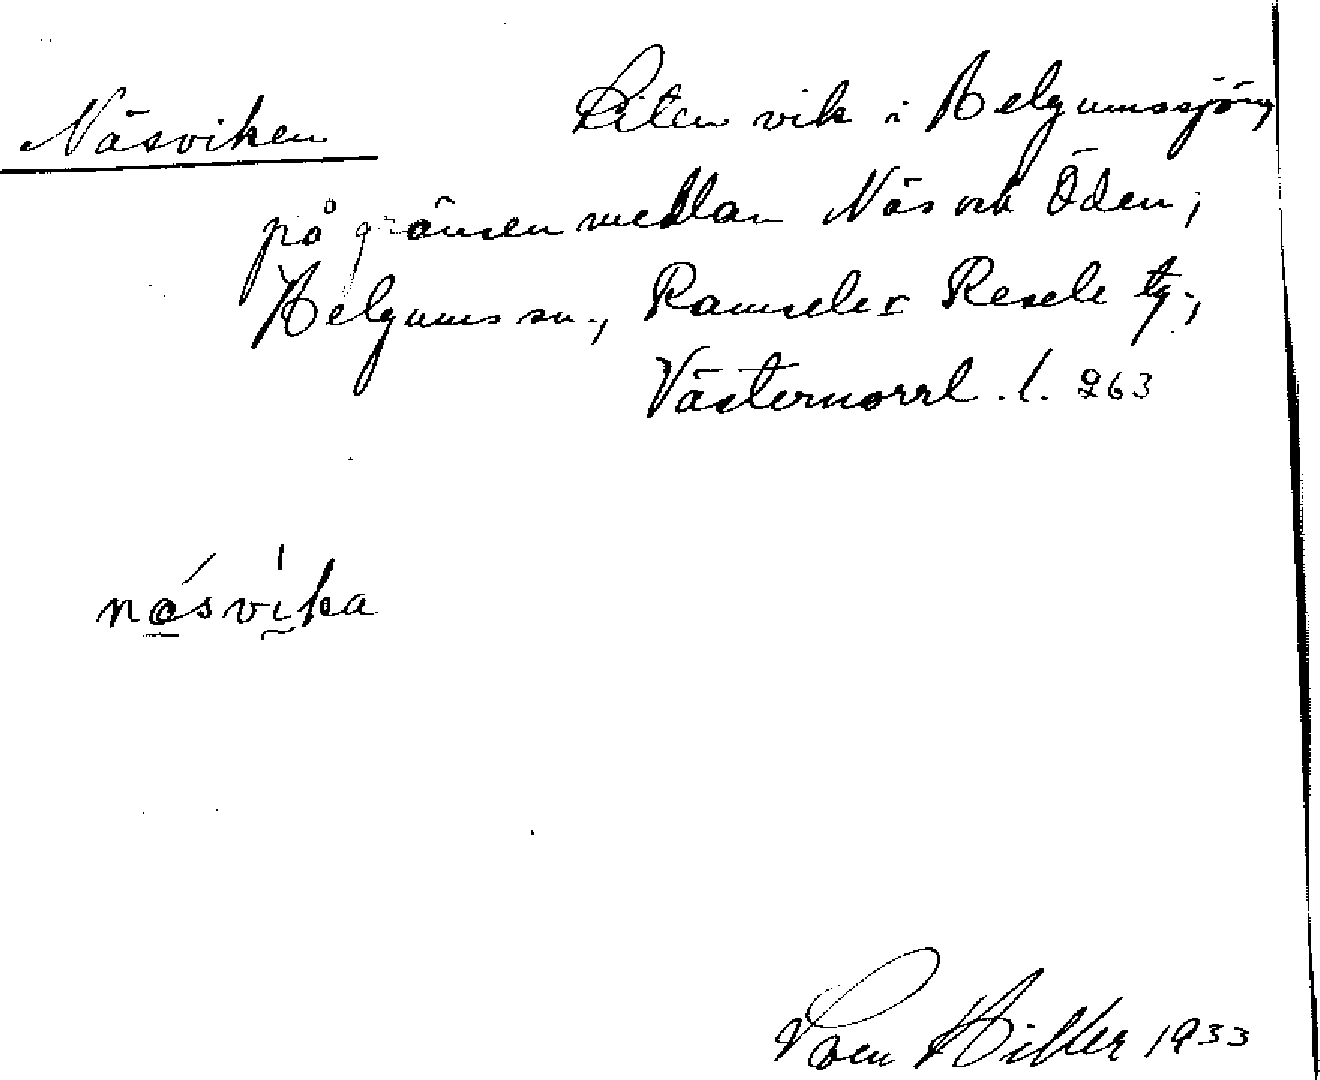 Näsviken Liten vik i Helgumssjön
på gränsen mellan Näs och Öden,
Helgums sn., Ramsele o Resele tg.,
Västernorrl. l. 263
näsvika
Sven Hiller 1933